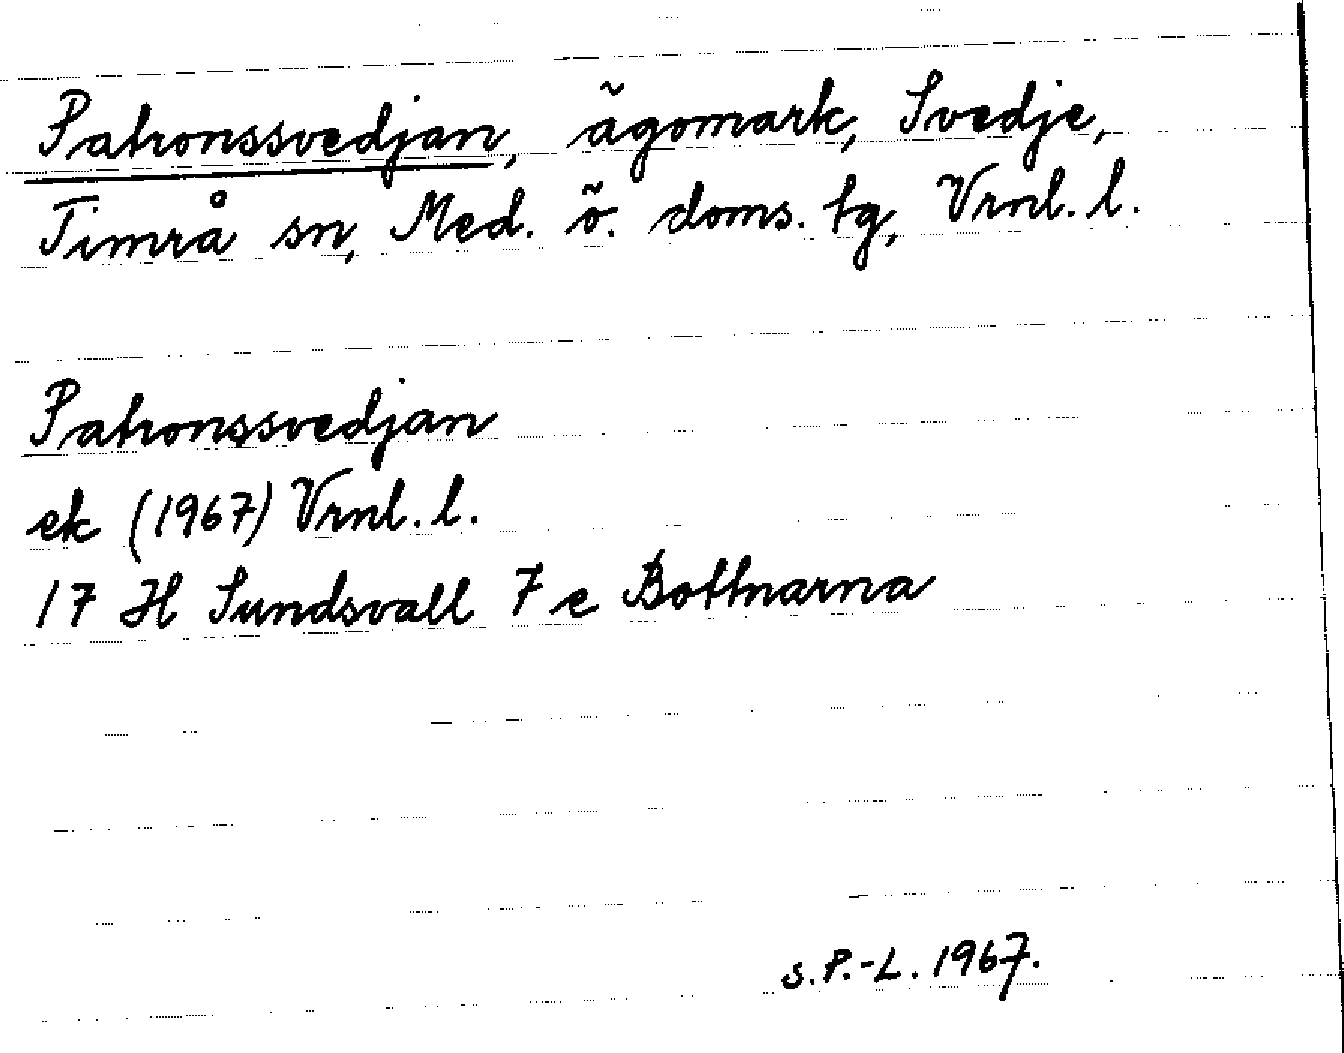 Patronssvedjan, ägomark, Svedje,
Timrå sn, Med. ö. doms. tg, Vrnl. l.
Patronssvedjan
ek (1967) Vrnl. l.
17 H Sundsvall 7 e Bottnarna
s. P.-L. 1967.